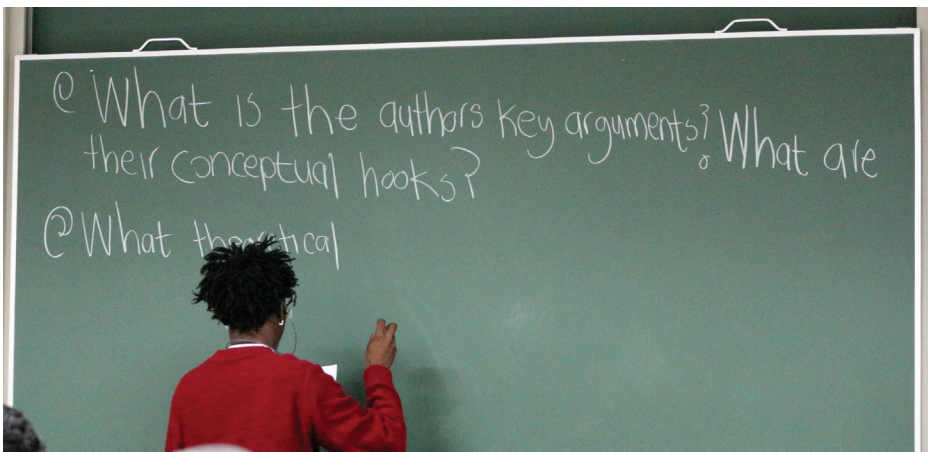 @ What is the authors key arguments? What are
their conceptual hooks?
@ What theoretical